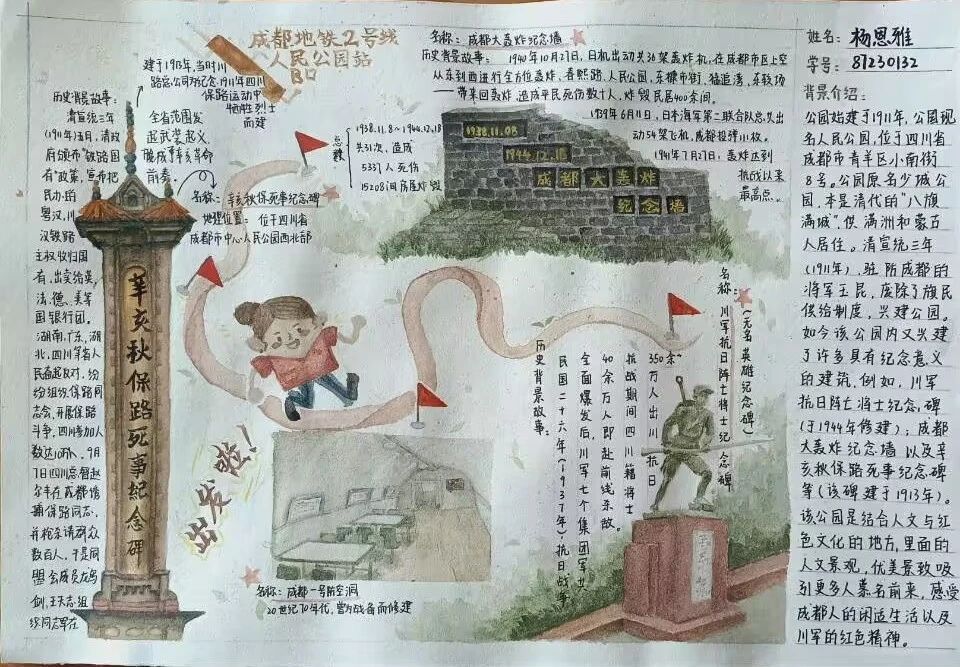 成都地铁2号线
人民公园站
B口
建于1913年,当时川
路总公司为纪念1911年四川
保路运动中
牺牲烈士
而建
历史背景故事:
清宣统三年
(1911年)五月,清政
府颁布"铁路国
有"政策,宣布把
民办的
粤汉,川
汉铁路
主权收归国
有,出卖给英,
法、德、美等
国银行团。
湖南,广东,湖
北,四川等省人
民奋起反对,纷
纷组织保路同
志会,开展保路
斗争,四川参加人
数达10万,9月
7日四川总督赵
尔丰在成都诱
捕保路同志,
并枪杀请愿群众
数百人,于是同
盟会成员龙鸣
剑,王天杰组
织同志军在
全省范围发
起武装起义,
酿成辛亥革命
前奏。
名称:辛亥秋保路死事纪念碑
地理位置:位于四川省
成都市中心人民公园西北部
辛亥秋保路死事纪念碑
名称:成都大轰炸纪念墙
历史背景故事:1940年10月27日,日机出动共36架轰炸机,在成都市区上空
从东到西进行全方位轰炸,春熙路,人民公园,东糠市街,猛追湾
一带来回轰炸,造成平民死伤数十人,炸毁民居400余间。
1939年6月11日,日本海军第二联合队总共出
动54架飞机,成都投弹
1941年7月27日:轰炸达到
抗战以来
最高点。
总稹
1938.11.8~1944.12.18
共31次,造成
5337人死伤
15208间房屋炸毁
1938.11.08
1944.12.18
成都大轰炸
纪念墙
出发啦!
名称:成都一号防空洞
20世纪70年代,曾为战备而修建
名称:
川军抗日阵亡将士纪念碑
(无名英雄纪念碑)
历史背景故事:
民国二十六年(1937年),抗日战争
全面爆发后,川军七个集团军
40余万人即赴前线杀敌。
抗战期间四川籍将士
350余
万人出川抗日
姓名:杨恩雅
学号:87230132
背景介绍:
公园始建于1911年,公园现
名人民公园,位于四川省
成都市青羊区小南街
8号。公园原名少城公
园,本是清代的"八旗
满城",供满洲和蒙古
人居住。清宣统三年
(1911年),驻防成都的
将军玉昆,废除了旗民
供给制度,兴建公园。
如今该公园内又兴建
了许多具有纪念意义
的建筑,例如,川军
抗日阵亡将士纪念碑
(于1944年修建);成都
大轰炸纪念墙以及辛
亥秋保路死事纪念碑
等(该碑建于1913年)。
该公园是结合人文与红
色文化的地方,里面的
人文景观,优美景致吸
引更多人慕名前来,感受
成都人的闲适生活以及
川军的红色精神。